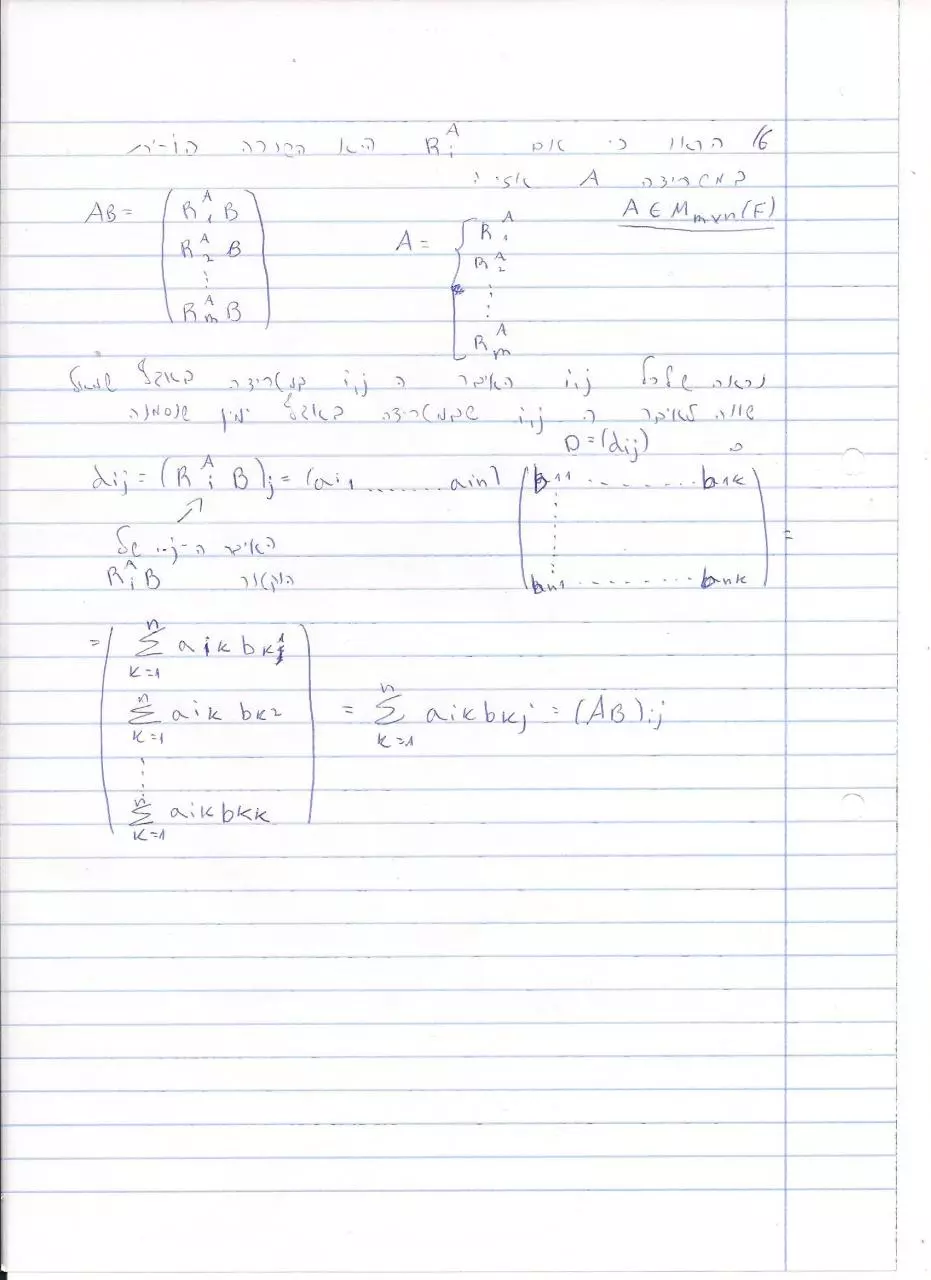 16 הראו כי אם R_i^A היא השורה ה-i-ית
במטריצה A אזי:
A ∈ M_{mxn}(F)
A = [R_1^A R_2^A ⋮ R_m^A
AB = (R_1^A B R_2^A B ⋮ R_m^A B)
נראה שלכל i,j האיבר ה i,j במטריצה באגף שמאל
שווה לאיבר ה i,j שבמטריצה באגף ימין שנסמנה
D = (dij)
dij = (R_i^A B)j = (ai1 ........ ain) (b11 ........ b1k ⋮ bn1 ........ bnk) =
האיבר ה-j-י של
הוקטור R_i^A B
= (∑_{k=1}^{n} aik bk1 ∑_{k=1}^{n} aik bk2 ⋮ ∑_{k=1}^{n} aik bkk) = ∑_{k=1}^{n} aik bkj = (AB)ij